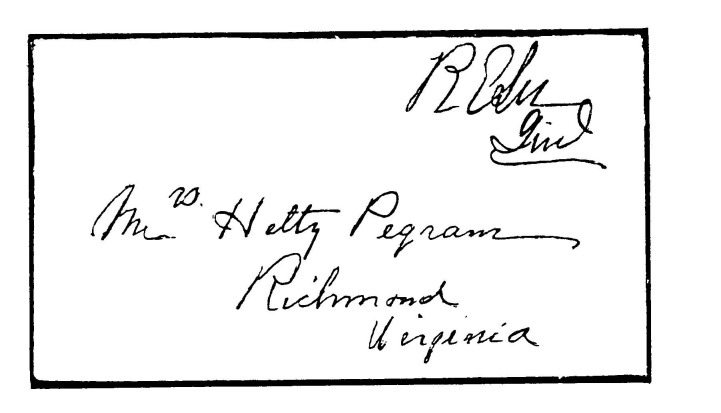 R E Lee
Genl
Mrs. Hetty Pegram
Richmond
Virginia